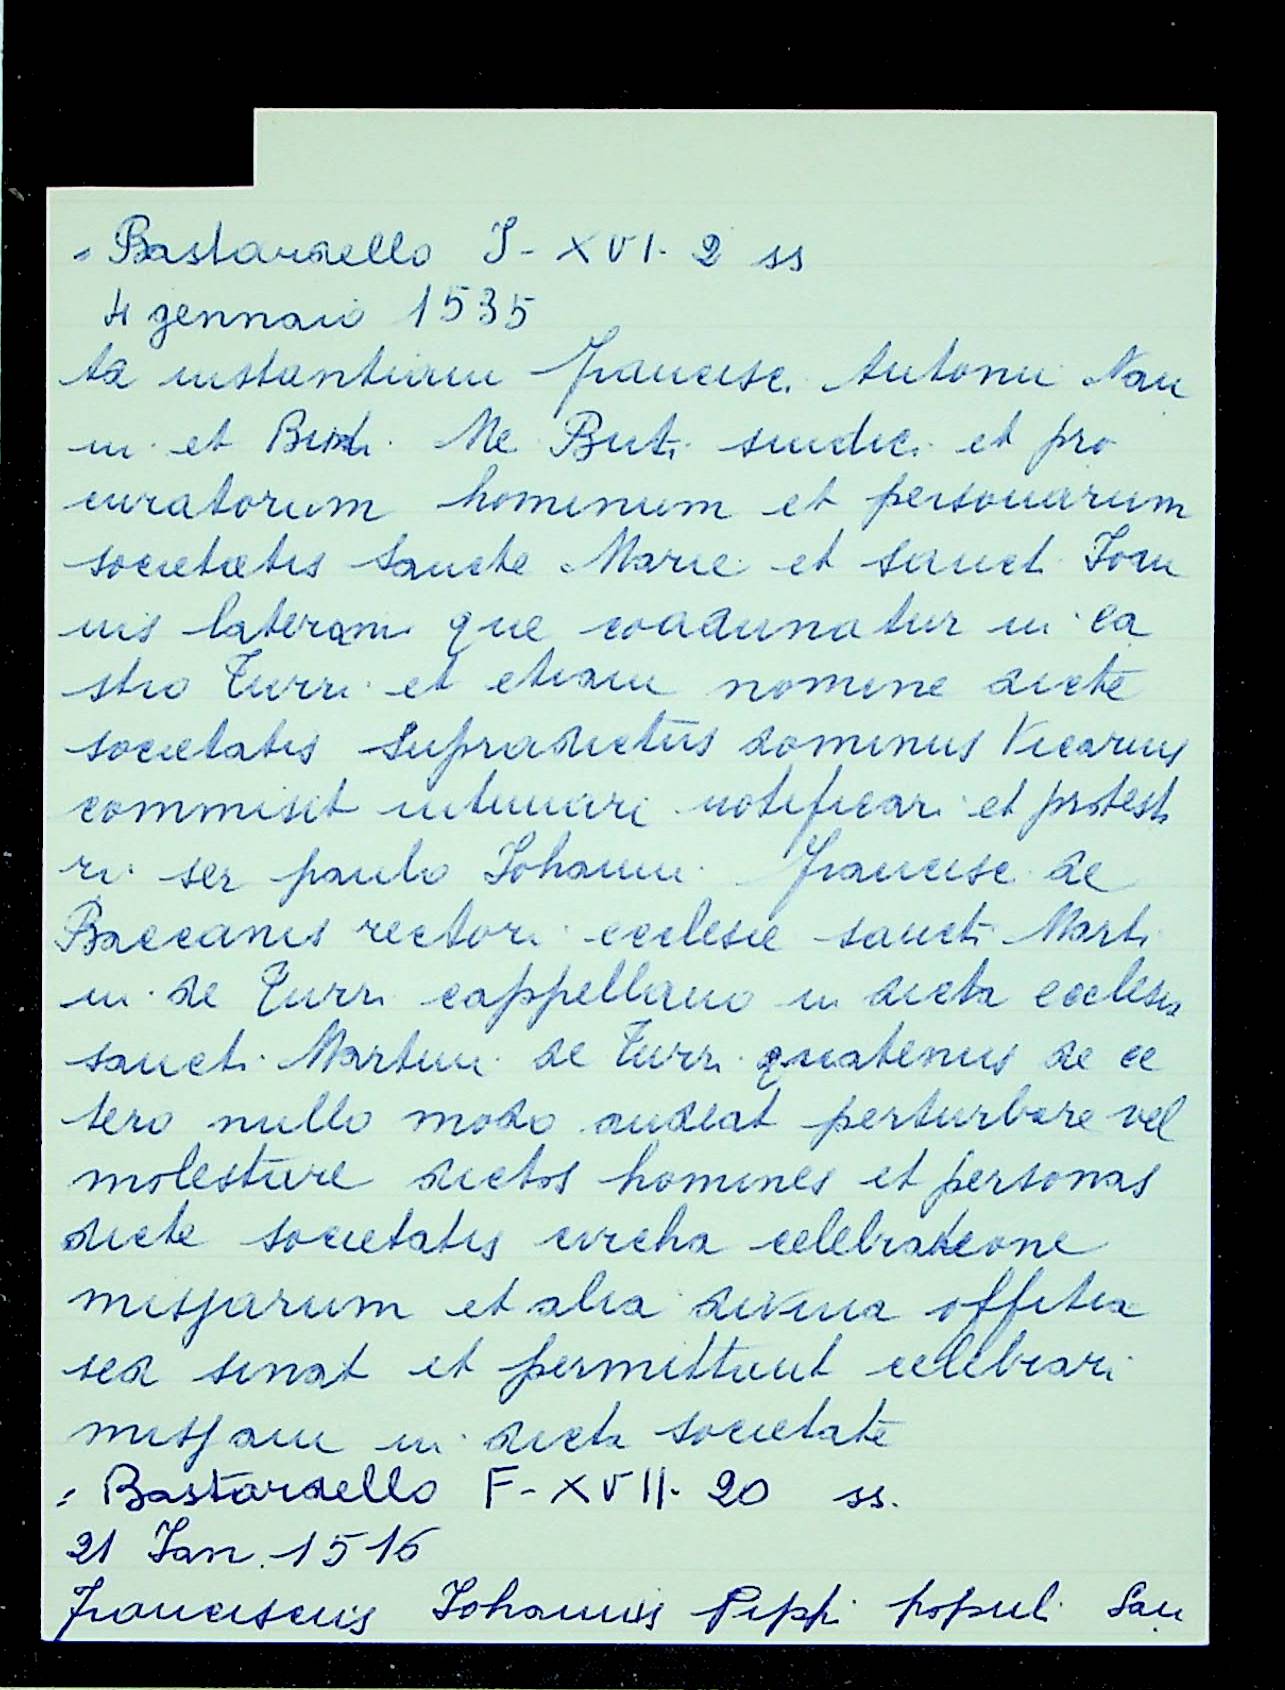 Bastardello I-XVI-2 ss
4 gennaio 1535
Ad instantiam Francisci Antonii Nan
ni et Me Buti sindici et pro
curatorum hominum et personarum
societatis Sancte Marie et Sancti Ioan
nis laterani que coadunatur in ca
stro Turri et etiam nomine dicte
societatis Supradictus dominus Vicarius
commisit intimari notificari et protesta
ri ser paulo Iohanni Francisci de
Baccanis rectori ecclesie sancti Marti
ni de Turri cappellano in dicta ecclesia
sancti Martini de Turri quatenus de ce
tero nullo modo audeat perturbare vel
molestare dictos homines et personas
dicte societatis circha celebratione
missarum et alia divina offitia
sed sinat et permittant celebrari
missam in dicta societate
Bastardello F-XVII-20 ss.
21 Ian. 1516
Franciscus Iohannis Pippi populi San